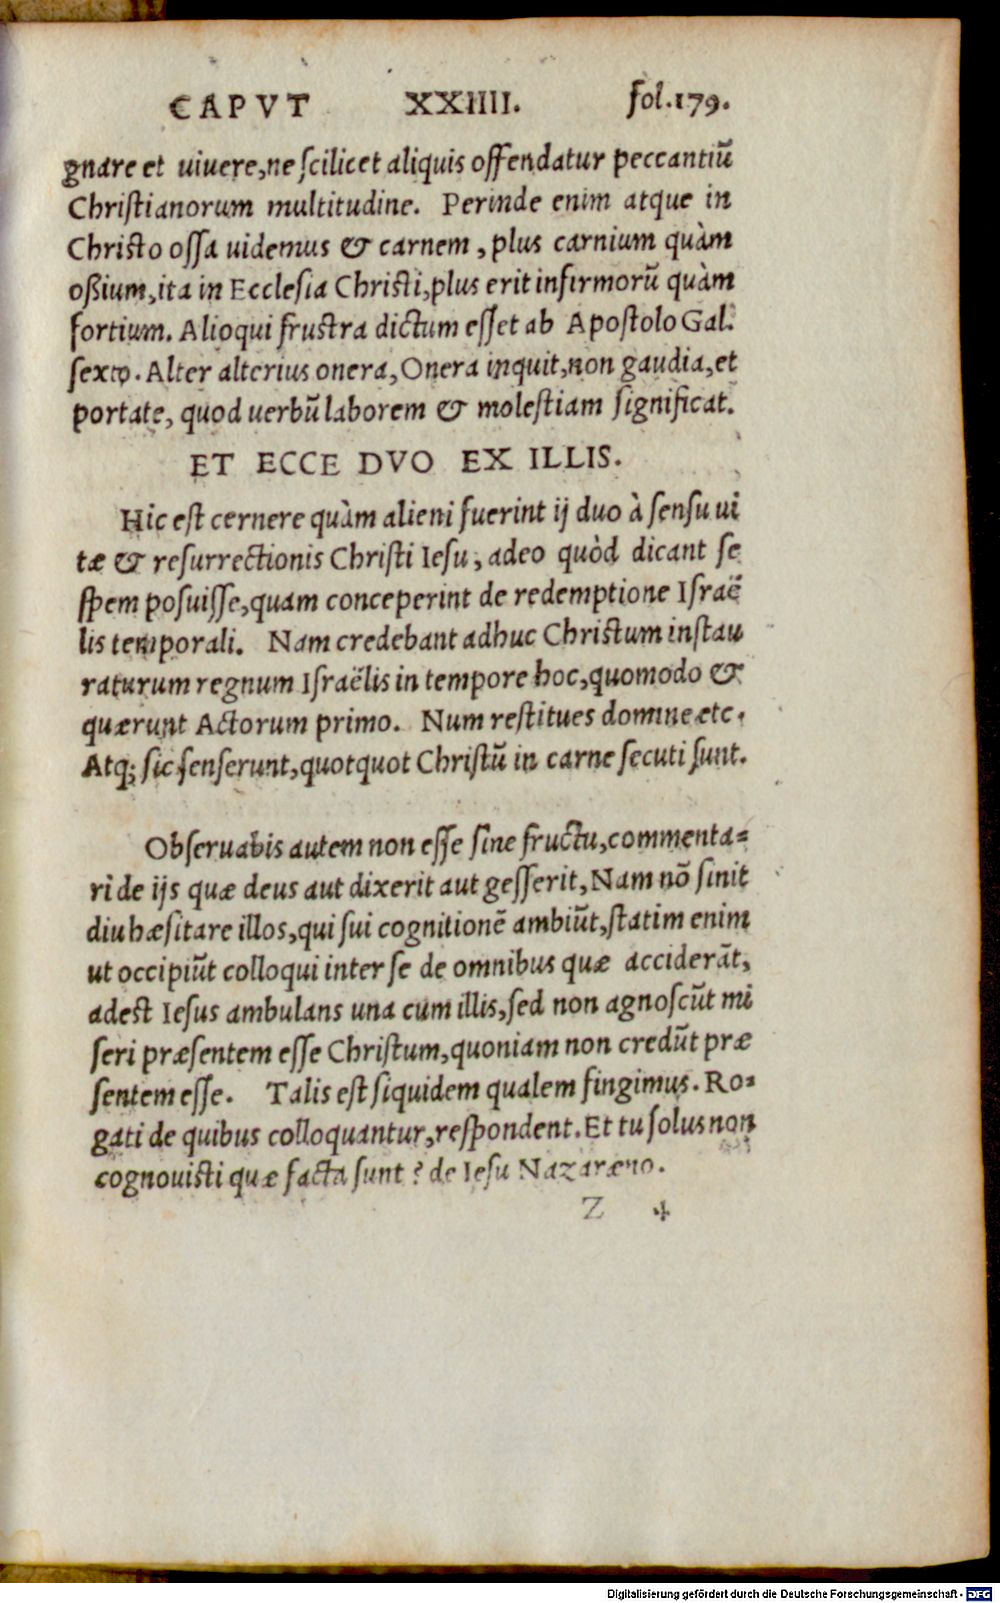 CAPVT XXIIII. fol.179.
gnare et uiuere,ne scilicet aliquis offendatur peccantiũ
Christianorum multitudine. Perinde enim atque in
Christo ossa uidemus & carnem, plus carnium quàm
oßium,ita in Ecclesia Christi,plus erit infirmorũ quàm
fortium. Alioqui frustra dictum esset ab Apostolo Gal.
sexto. Alter alterius onera, Onera inquit,non gaudia, et
portate, quod uerbũ laborem & molestiam significat.
ET ECCE DVO EX ILLIS.
Hic est cernere quàm alieni fuerint ij duo à sensu ui
tæ & resurrectionis Christi Iesu, adeo quòd dicant se
spem posuisse,quam conceperint de redemptione Israë
lis temporali. Nam credebant adhuc Christum instau
raturum regnum Israëlis in tempore hoc,quomodo &
quærunt Actorum primo. Num restitues domine etc.
Atq; sic senserunt,quotquot Christũ in carne secuti sunt.
Obseruabis autem non esse sine fructu,commenta=
ri de ijs quæ deus aut dixerit aut gesserit, Nam nõ sinit
diu hæsitare illos,qui sui cognitionẽ ambiũt,statim enim
ut occipiũt colloqui inter se de omnibus quæ acciderãt,
adest Iesus ambulans una cum illis,sed non agnoscũt mi
seri præsentem esse Christum,quoniam non credũt præ
sentem esse. Talis est siquidem qualem fingimus. Ro=
gati de quibus colloquantur,respondent. Et tu solus non
cognouisti quæ facta sunt? de Iesu Nazaræno.
Z ✣
Digitalisierung gefördert durch die Deutsche Forschungsgemeinschaft - DFG